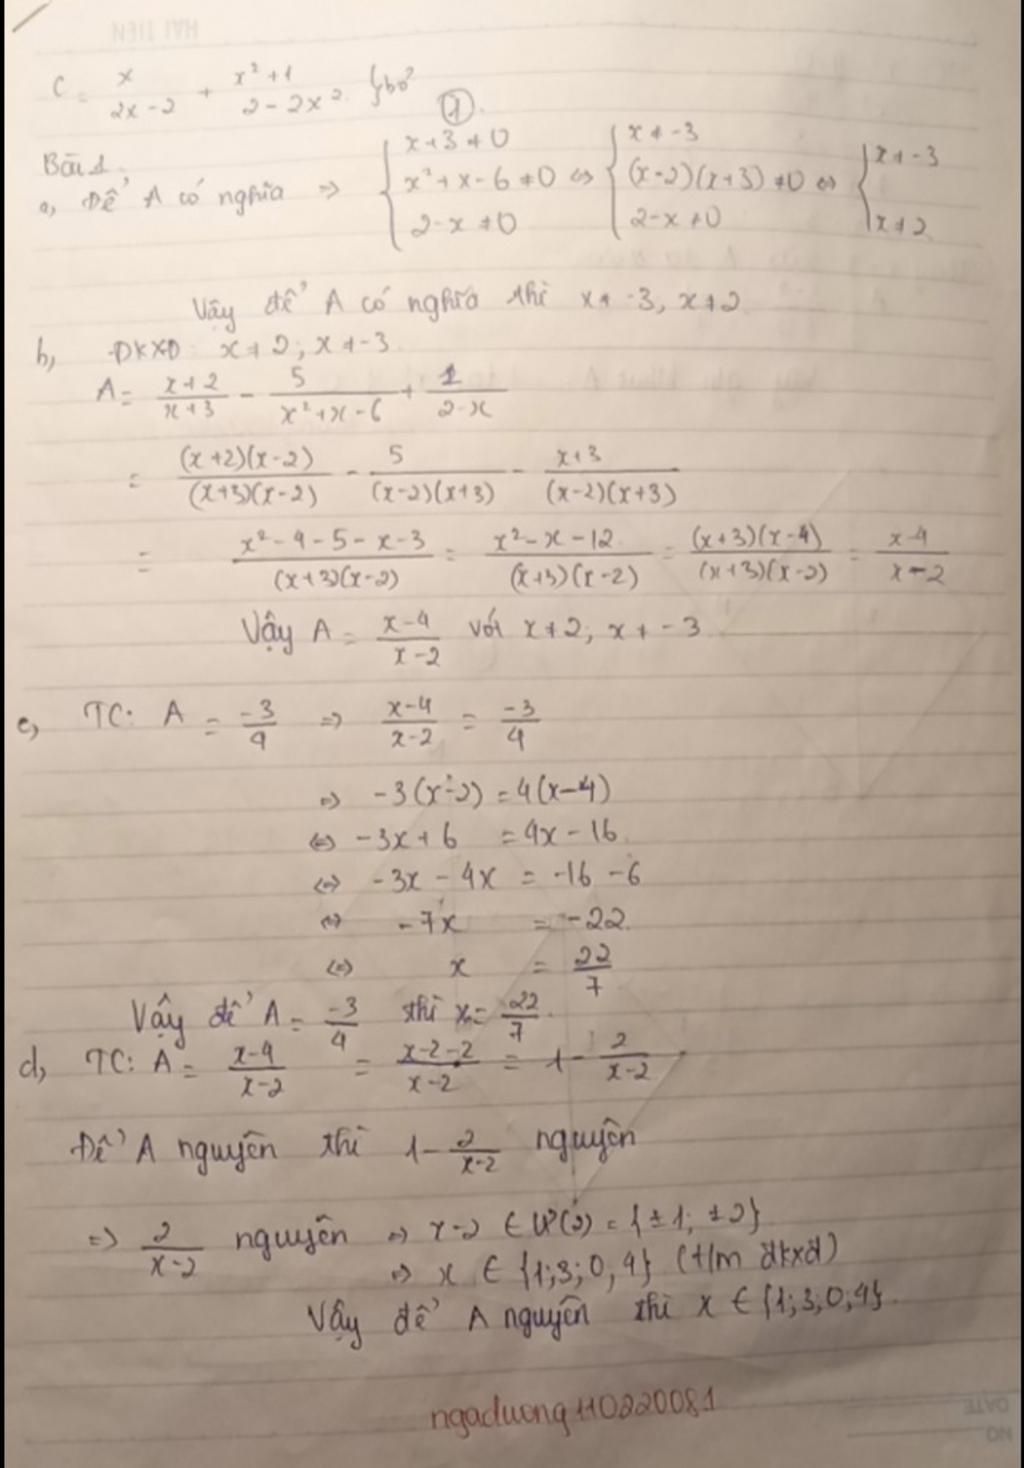 C = x/(2x-2) + (x²+1)/(2-2x²) } bỏ
①
Bài 1
a, Để A có nghĩa => { x+3≠0; x²+x-6≠0; 2-x≠0 <=> { x≠-3; (x-2)(x+3)≠0; 2-x≠0 <=> { x≠-3; x≠2
Vậy để A có nghĩa thì x≠-3, x≠2
b, ĐKXĐ: x≠2; x≠-3
A = (x+2)/(x+3) - 5/(x²+x-6) + 1/(2-x)
= (x+2)(x-2)/(x+3)(x-2) - 5/(x-2)(x+3) - (x+3)/(x-2)(x+3)
= (x²-4-5-x-3)/(x+3)(x-2) = (x²-x-12)/(x+3)(x-2) = (x+3)(x-4)/(x+3)(x-2) = (x-4)/(x-2)
Vậy A = (x-4)/(x-2) với x≠2; x≠-3
c, TC: A = -3/4 => (x-4)/(x-2) = -3/4
=> -3(x-2) = 4(x-4)
<=> -3x+6 = 4x-16
<=> -3x-4x = -16-6
<=> -7x = -22
<=> x = 22/7
Vậy để A = -3/4 thì x = 22/7
d, TC: A = (x-4)/(x-2) = (x-2-2)/(x-2) = 1 - 2/(x-2)
Để A nguyên thì 1 - 2/(x-2) nguyên
=> 2/(x-2) nguyên => x-2 ∈ Ư(2) = {±1; ±2}
=> x ∈ {1;3;0,4} (t/m đkxđ)
Vậy để A nguyên thì x ∈ {1;3,0,4}
ngaduong110220081